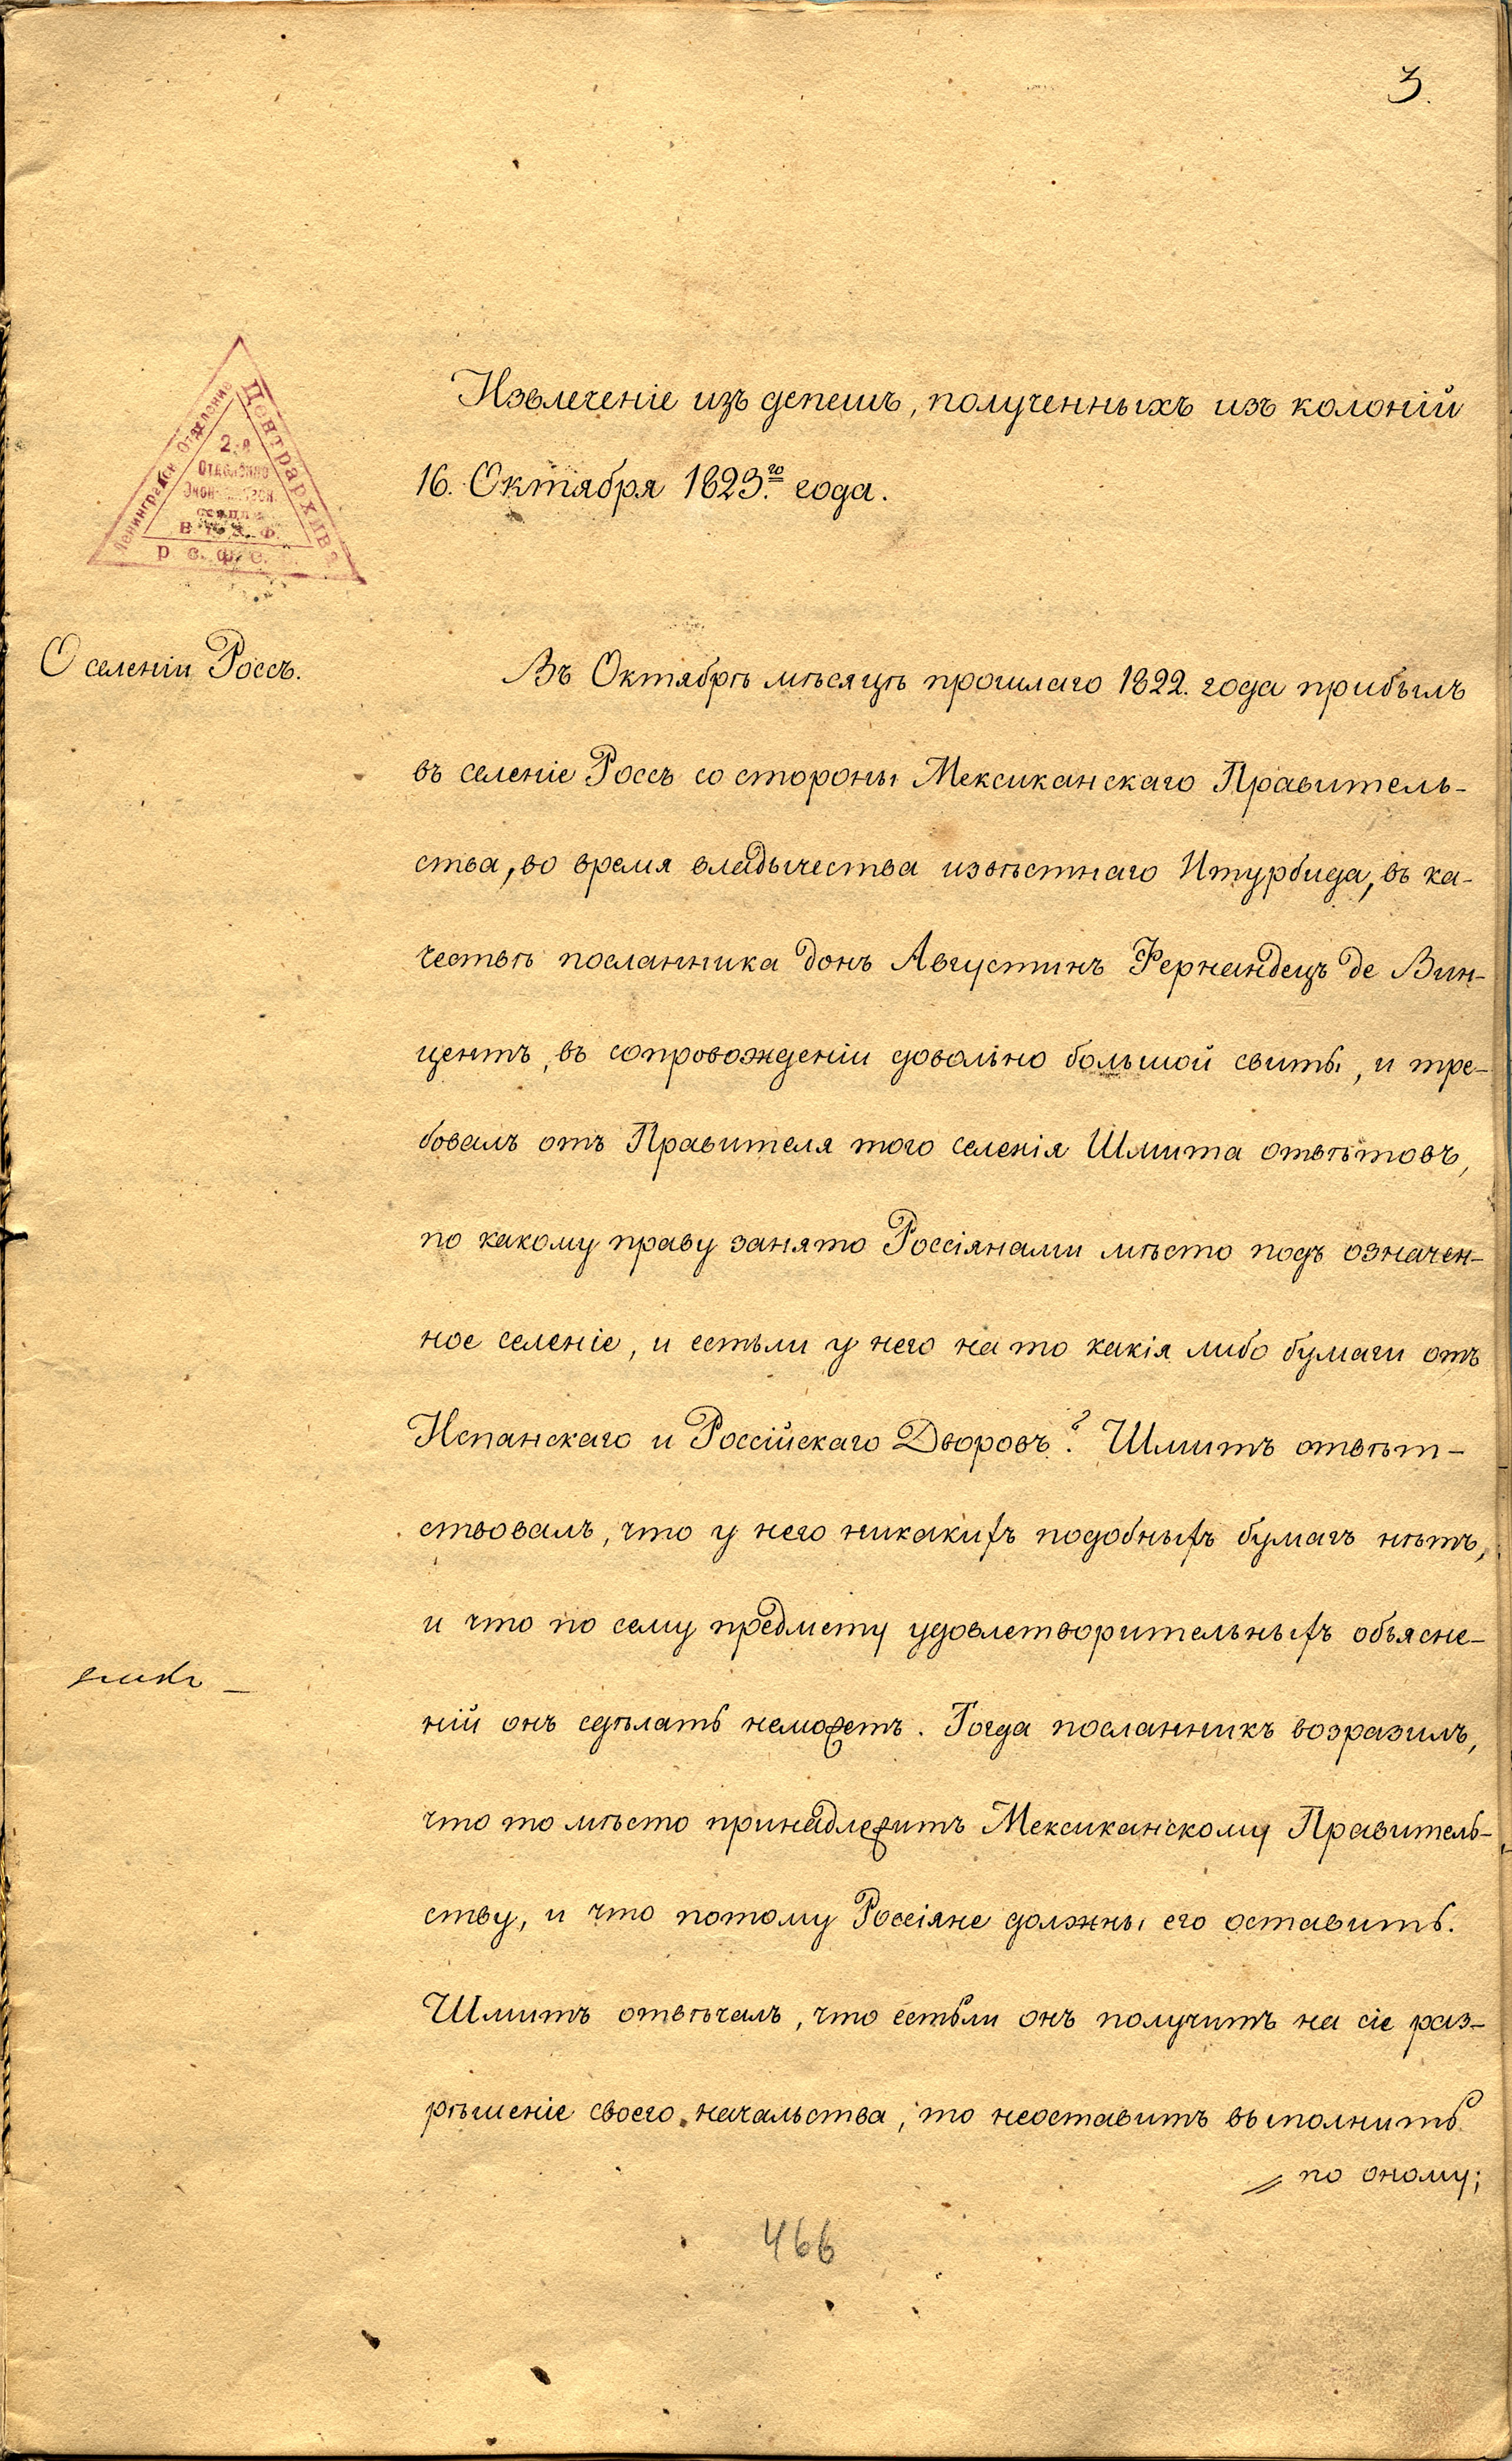 3.
Ленинградск. Отделение
Центрархива
2-е
Отделение
Эконом
секции
Р. С. Ф. С.
Извлеченіе изъ депешъ, полученныхъ изъ колоній
16. Октября 1823.го года.
О селеніи Россъ.
Въ Октябрѣ мѣсяцѣ прошлаго 1822. года прибылъ
въ селеніе Россъ со стороны Мексиканскаго Правитель-
ства, во время владычества извѣстнаго Итурбида, въ ка-
чествѣ посланника донъ Августинъ Фернандецъ де Вин-
центъ, въ сопровожденіи довольно большой свиты, и тре-
бовалъ отъ Правителя того селенія Шмита отвѣтовъ,
по какому праву занято Россіянами мѣсто подъ означен-
ное селеніе, и естьли у него на то какія либо бумаги отъ
Испанскаго и Россійскаго Дворовъ? Шмитъ отвѣт-
ствовалъ, что у него никакихъ подобныхъ бумагъ нѣтъ,
и что по сему предмету удовлетворительныхъ объясне-
ній онъ сдѣлать неможетъ. Тогда посланникъ возразилъ,
что то мѣсто принадлежитъ Мексиканскому Правитель-
ству, и что потому Россіяне должны его оставить.
Шмитъ отвѣчалъ, что естьли онъ получитъ на сіе раз-
рѣшеніе своего начальства, то неоставитъ выполнить
по оному;
466